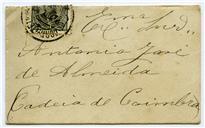 Exmo Snr.
Antonio José
de Almeida
Cadeia de Coimbra